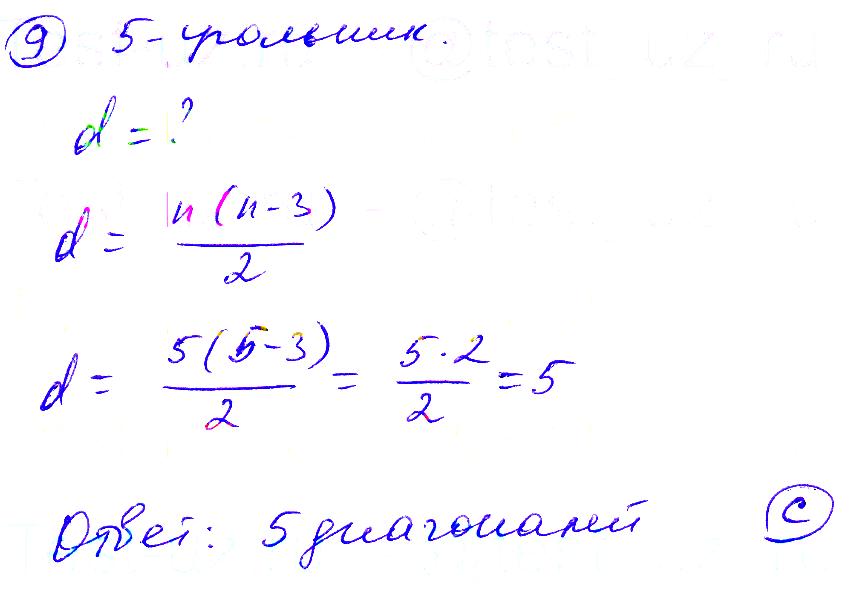 9 5-угольник.
d = ?
d = n(n-3)/2
d = 5(5-3)/2 = 5·2/2 = 5
Ответ: 5 диагоналей C